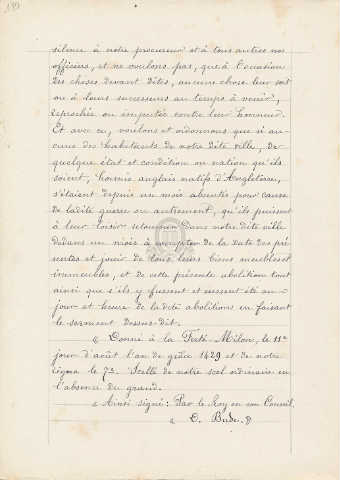 silence à notre procureur et à tous autres nos
officiers, et ne voulons pas, que à l'occasion
des choses devant dites, aucune chose leur soit
ou à leurs successeurs au temps à venir,
reprochée ou imputée contre leur honneur.
Et avec ce, voulons et ordonnons que si au-
cuns des habitants de notre dite ville, de
quelque état et condition ou nation qu'ils
soient, hormis anglais natifs d'Angleterre,
s'étaient depuis un mois absentés pour cause
de ladite guerre ou autrement, qu'ils puissent
à leur loisir retourner dans notre dite ville
dedans un mois à compter de la date des pré-
sentes et jouir de tous leurs biens meubles et
immeubles, et de cette présente abolition tout
ainsi que s'ils y fussent et eussent été au
jour et heure de la dite abolition en faisant
le serment dessus-dit.
« Donné à la Ferté-Milon, le 11e
jour d'août l'an de grâce 1429 et de notre
règne le 7e. Scellé de notre scel ordinaire en
l'absence du grand.
« Ainsi signé : Par le Roy en son Conseil
« D. Budé. »